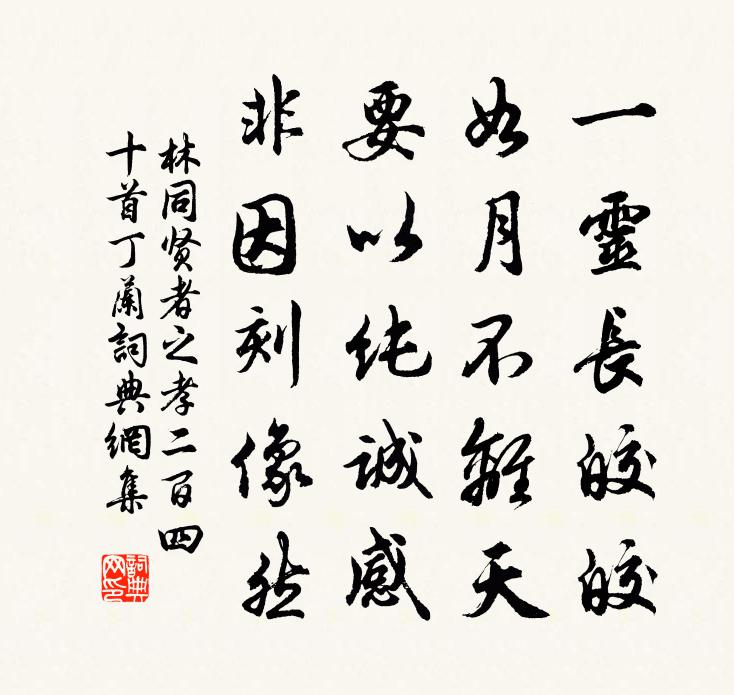 一靈長皎皎
如月不離天
要以純誠感
非因刻像然
林同贤者之孝二百四
十首丁蘭詞典網集
詞典
网印